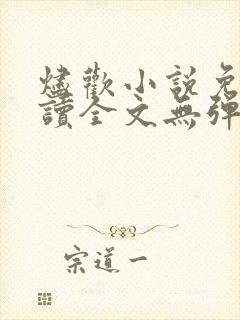 燼歡小說免
讀全文無彈
宗道一